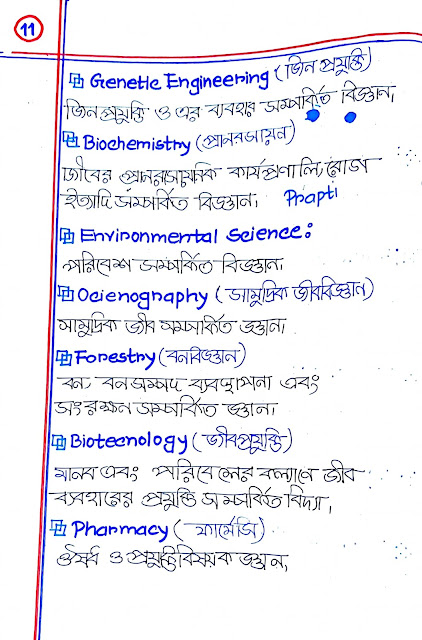 11
Genetic Engineering (জিন প্রযুক্তি)
জিনপ্রযুক্তি ও এর ব্যবহার সম্পর্কিত বিজ্ঞান।
Biochemistry (প্রানরসায়ন)
জীবের প্রানরাসায়নিক কার্যপ্রণালি, রোগ
ইত্যাদি সম্পর্কিত বিজ্ঞান। Prapti
Environmental Science:
পরিবেশ সম্পর্কিত বিজ্ঞান।
Ocienography (সামুদ্রিক জীববিজ্ঞান)
সামুদ্রিক জীব সম্পর্কিত জ্ঞান।
Forestry (বনবিজ্ঞান)
বন, বনসম্পদ ব্যবস্থাপনা এবং
সংরক্ষন সম্পর্কিত জ্ঞান।
Biotecnology (জীবপ্রযুক্তি)
মানব এবং পরিবেশের কল্যানে জীব
ব্যবহারের প্রযুক্তি সম্পর্কিত বিদ্যা।
Pharmacy (ফার্মেসি)
ঔষধ ও প্রযুক্তিবিষয়ক জ্ঞান।